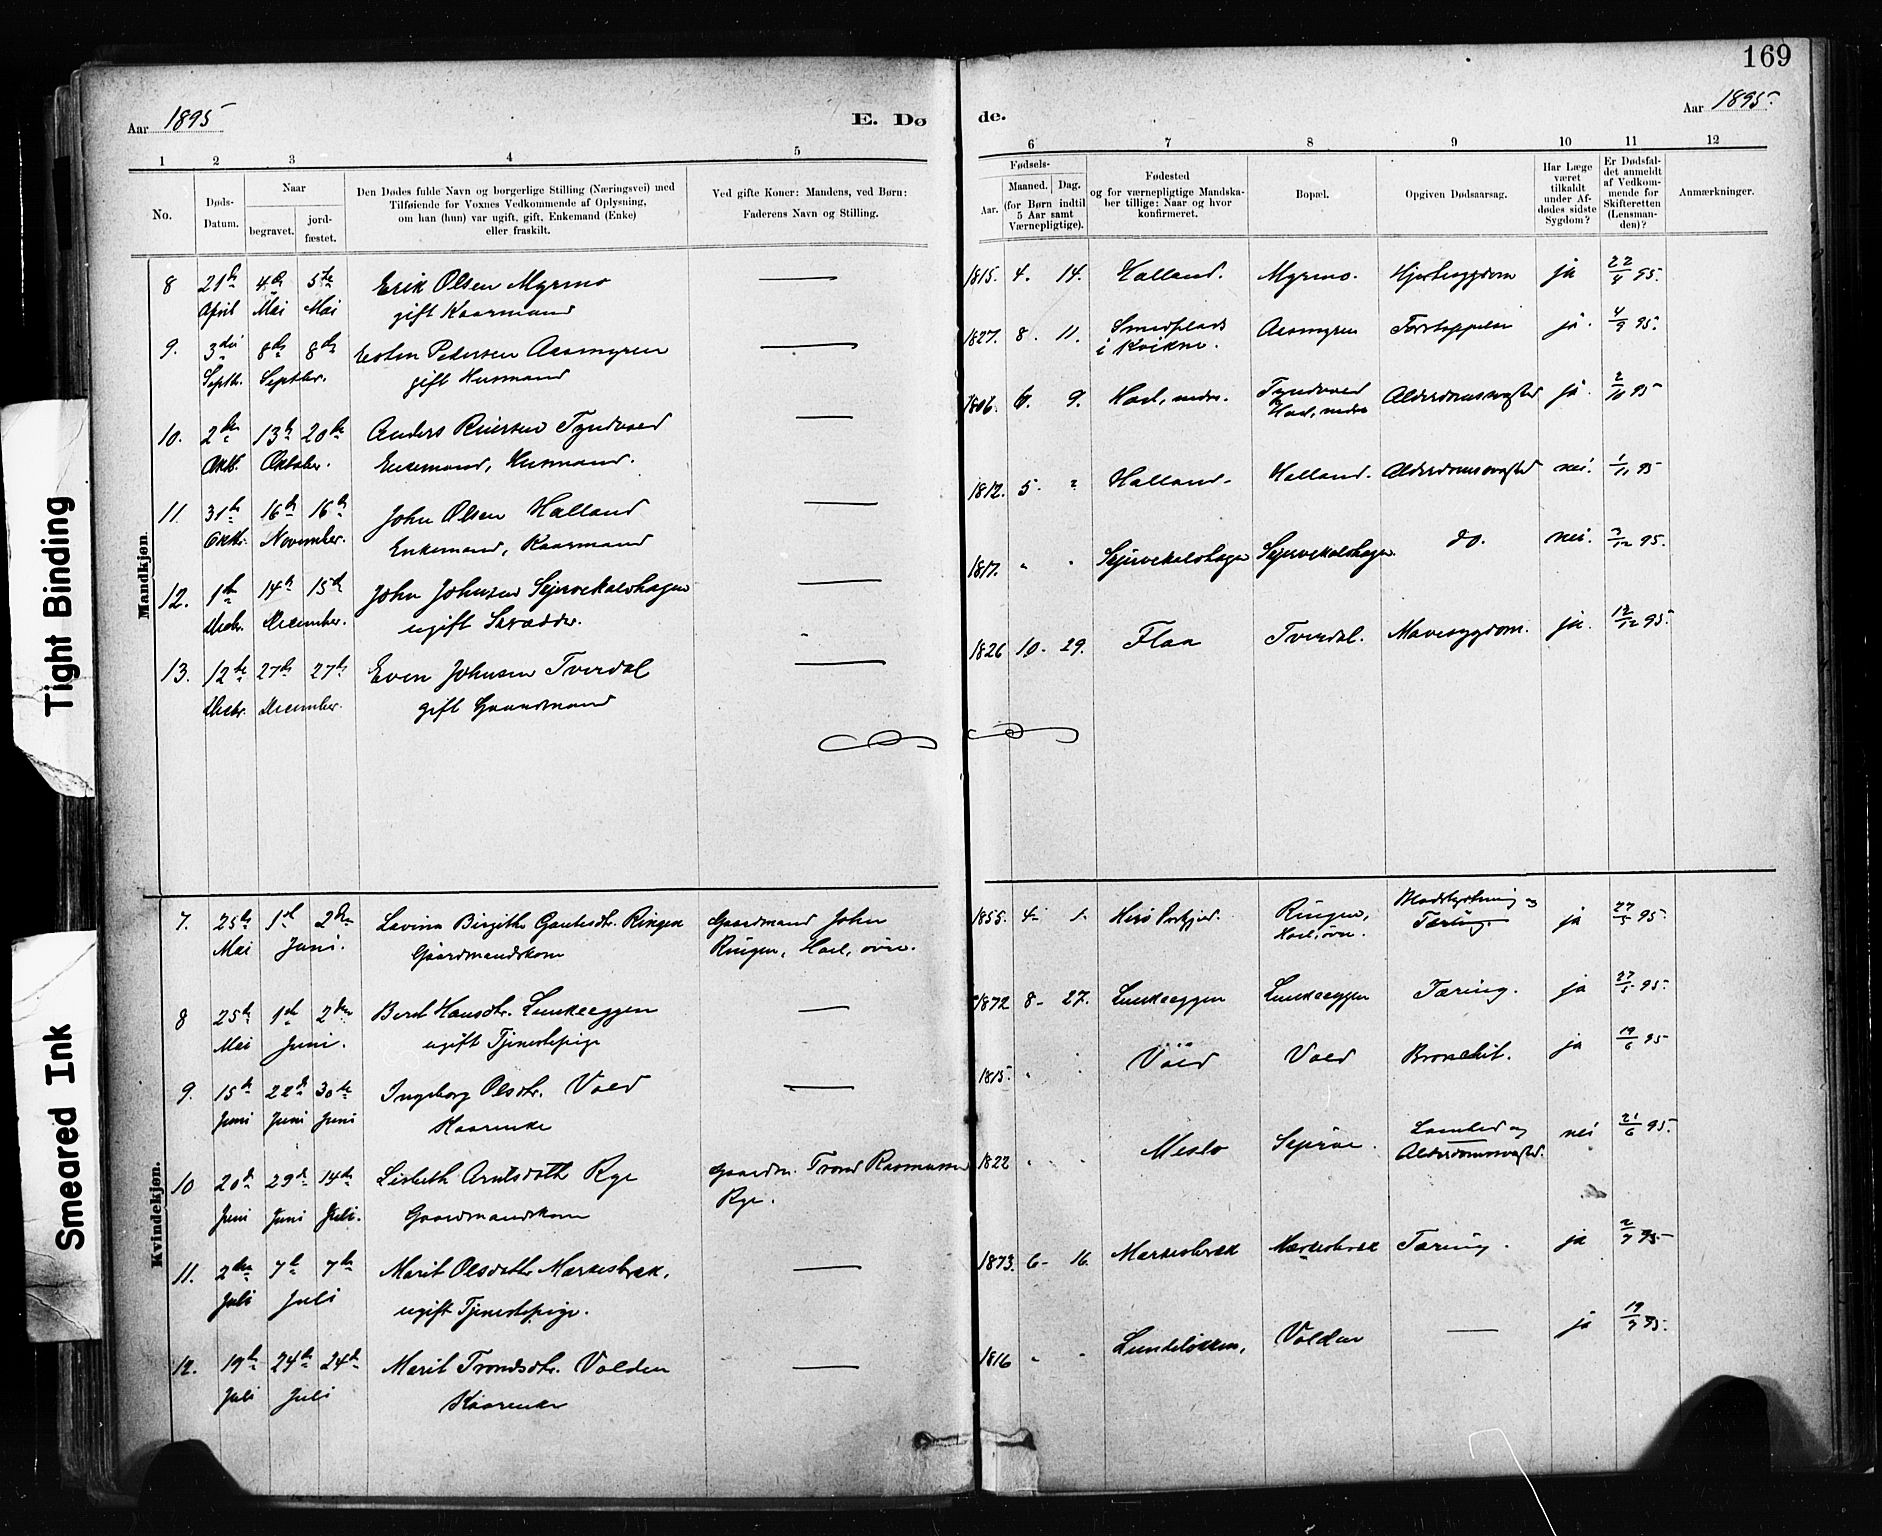 169
Aar 1895
E. Dø
de.
Aar 1895.
1 2 3 4 5
6 7 8 9 10 11 12
No.
Døds-Datum.
Naar
begravet.
jord-fæstet.
Den Dødes fulde Navn og borgerlige Stilling (Næringsvei) med
Tilføiende for Voxnes Vedkommende af Oplysning,
om han (hun) var ugift, gift, Enkemand (Enke)
eller fraskilt.
Ved gifte Koner: Mandens, ved Børn:
Faderens Navn og Stilling.
Fødsels-
Aar. Maaned. Dag.
(for Børn indtil
5 Aar samt
Værnepligtige).
Fødested
og for værnepligtige Mandska-
ber tillige: Naar og hvor
konfirmeret.
Bopæl.
Opgiven Dødsaarsag.
Har Læge
været
tilkaldt
under Af-
dødes sidste
Sygdom?
Er Dødsfal-
det anmeldt
af Vedkom-
mende for
Skifteretten
(Lensman-
den)?
Anmærkninger.
Mandkjøn.
8 21de 4de 5te Erik Olsen Myrmo — 1815. 4. 14. Halland. Myrmo. Hjertesygdom ja 22/4 95.
April Mai Mai gift Kaarmand
9. 3die 8de 8de Esten Pedersen Aasmyren — 1827. 8. 11. Smedplads Aasmyren ja. 4/9 95.
Septb. Septber. gift Husmand i Kvikne.
10. 2den 13de 20de Anders Reiersen Tyndvoed — 1806. 6. 9. Hoel, nedre. Tyndvoed Alderdomssvaghed ja. 2/10 95
Oktb. Oktober. Enkemand, Husmand. Hoel, nedre
11. 31te 16de 16de John Olsen Halland — 1812. 5. " Halland. Halland. Alderdomssvaghed nei. 1/11 95
Oktb. November. Enkemand, Kaarmand
12. 1ste 14de 15de John Johnsen — 1817. " " do. nei. 3/12 95.
Decbr. December. ugift Skrædder.
13. 12te 27de 27de Even Johnsen Tverdal — 1826 10. 29. Flaa Tverdal. Mavesygdom. ja. 12/12 95.
Decbr. December. gift Gaardmand
Kvindekjøn.
7. 25de 1ste 2den Lovina Birgithe Gautesdtr. Ringen Gaardmand John 1855. 4. 1. Ringen, Blodstyrtning og ja 27/5 95
Mai Juni. Gaardmandskone Ringen, Hoel, øvre. Hoel, øvre. Tæring.
8 25de 1ste 2den Berit Hansdtr. Lunkeeggen — 1872 8. 27. Lunkeeggen Lunkeeggen Tæring. ja 27/5 95.
Mai Juni. ugift Tjenestepige
9. 15de 22de 30te Ingeborg Olsdtr. Vold — 1815. " " Vold Vold Bronchit. ja 19/6 95
Juni Juni Juni Kaarenke
10 20de 29de 14de Lisbeth Arntsdatter Rye Gaardm. Trond Rasmussen 1822 " " Meslo Lamhed og nei 21/6 95.
Juni Juni Juli. Gaardmandskone Rye. Alderdomssvaghed.
11. 2den 7de 7de Marit Olsdatter Mærkesbræk. — 1873. 6. 16. Mærkesbræk Mærkesbræk Tæring. ja 2/7 95
Juli Juli ugift Tjenestepige.
12. 19de 24de 24de Marit Trondsdtr. Volden — 1816 " " Lundeløkken, Volden — ja 19/7 95.
Juli Juli Kaarenke
Tight Binding
Smeared Ink